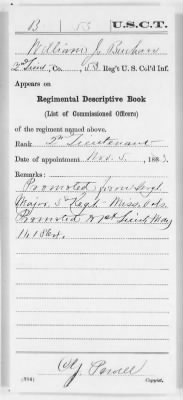 B 53 U.S.C.T.
William J. Burham
2" Lieut, Co. , 53 Reg't U. S. Col'd Inf.
Appears on
Regimental Descriptive Book
(List of Commissioned Officers)
of the regiment named above.
Rank 2" Lieutenant
Date of appointment Nov. 5, 1863.
Remarks:
Promoted from Sergt
Major 3" Regt Miss. Vols.
Promoted to 1st Lieut May
14 1864.
(384) Powell Copyist.